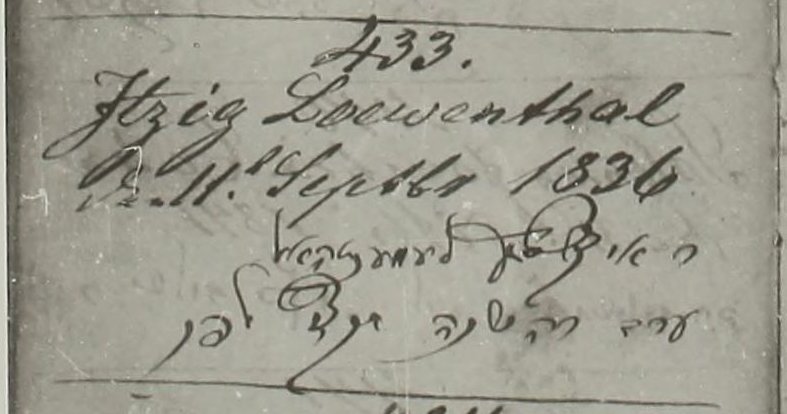 433.
Itzig Loewenthal
D. 11. Septbr 1836
ר איציג לעווענטהאל
ערב רה שנה תקצז לפק